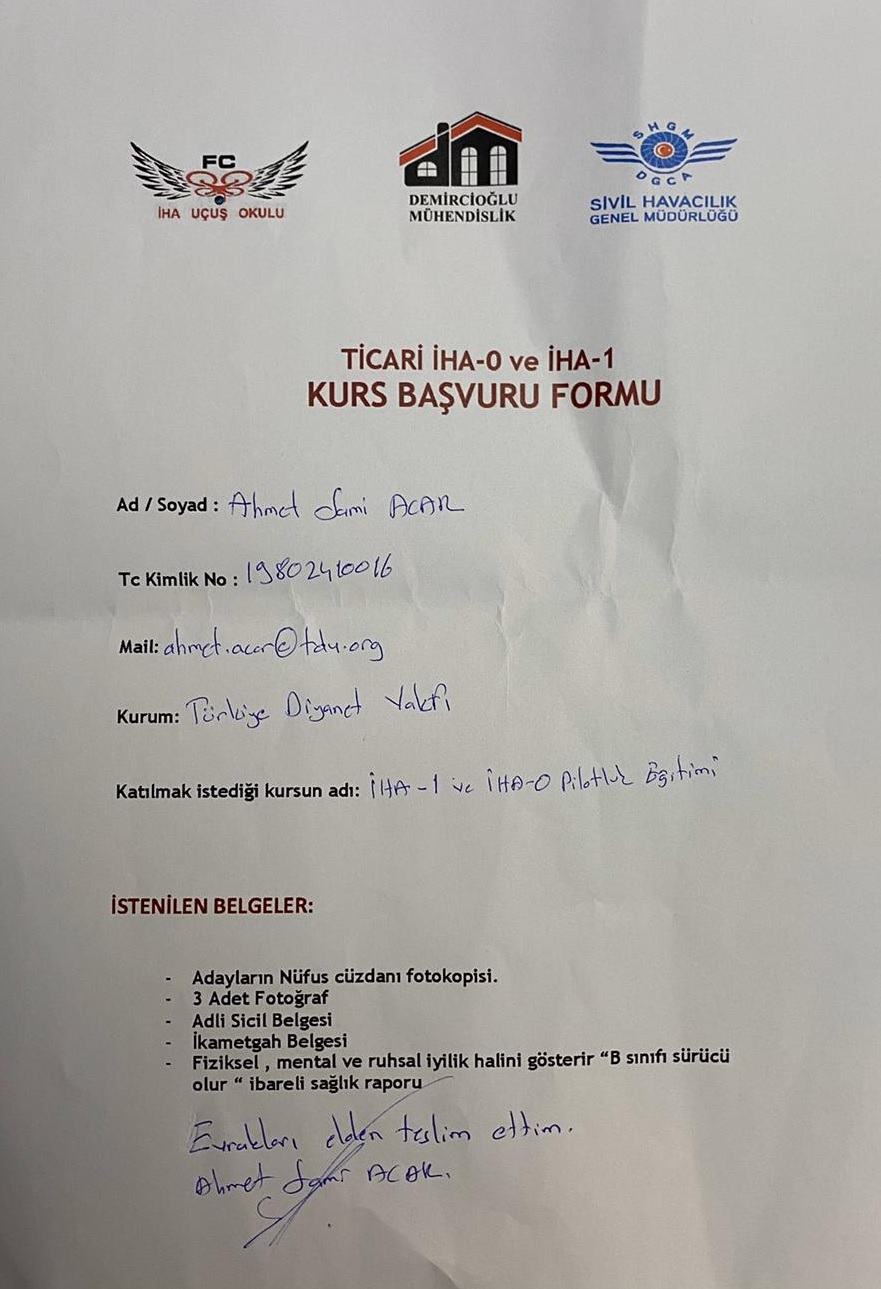 FC
İHA UÇUŞ OKULU
DEMİRCİOĞLU
MÜHENDİSLİK
SHGM
DGCA
SİVİL HAVACILIK
GENEL MÜDÜRLÜĞÜ
TİCARİ İHA-0 ve İHA-1
KURS BAŞVURU FORMU
Ad / Soyad : Ahmet Sami ACAR
Tc Kimlik No : 19802410016
Mail: ahmet.acar@tdv.org
Kurum: Türkiye Diyanet Vakfı
Katılmak istediği kursun adı: İHA-1 ve İHA-0 Pilotluk Eğitimi
İSTENİLEN BELGELER:
- Adayların Nüfus cüzdanı fotokopisi.
- 3 Adet Fotoğraf
- Adli Sicil Belgesi
- İkametgah Belgesi
- Fiziksel , mental ve ruhsal iyilik halini gösterir “B sınıfı sürücü
olur “ ibareli sağlık raporu
Evrakları elden teslim ettim.
Ahmet Sami ACAR.